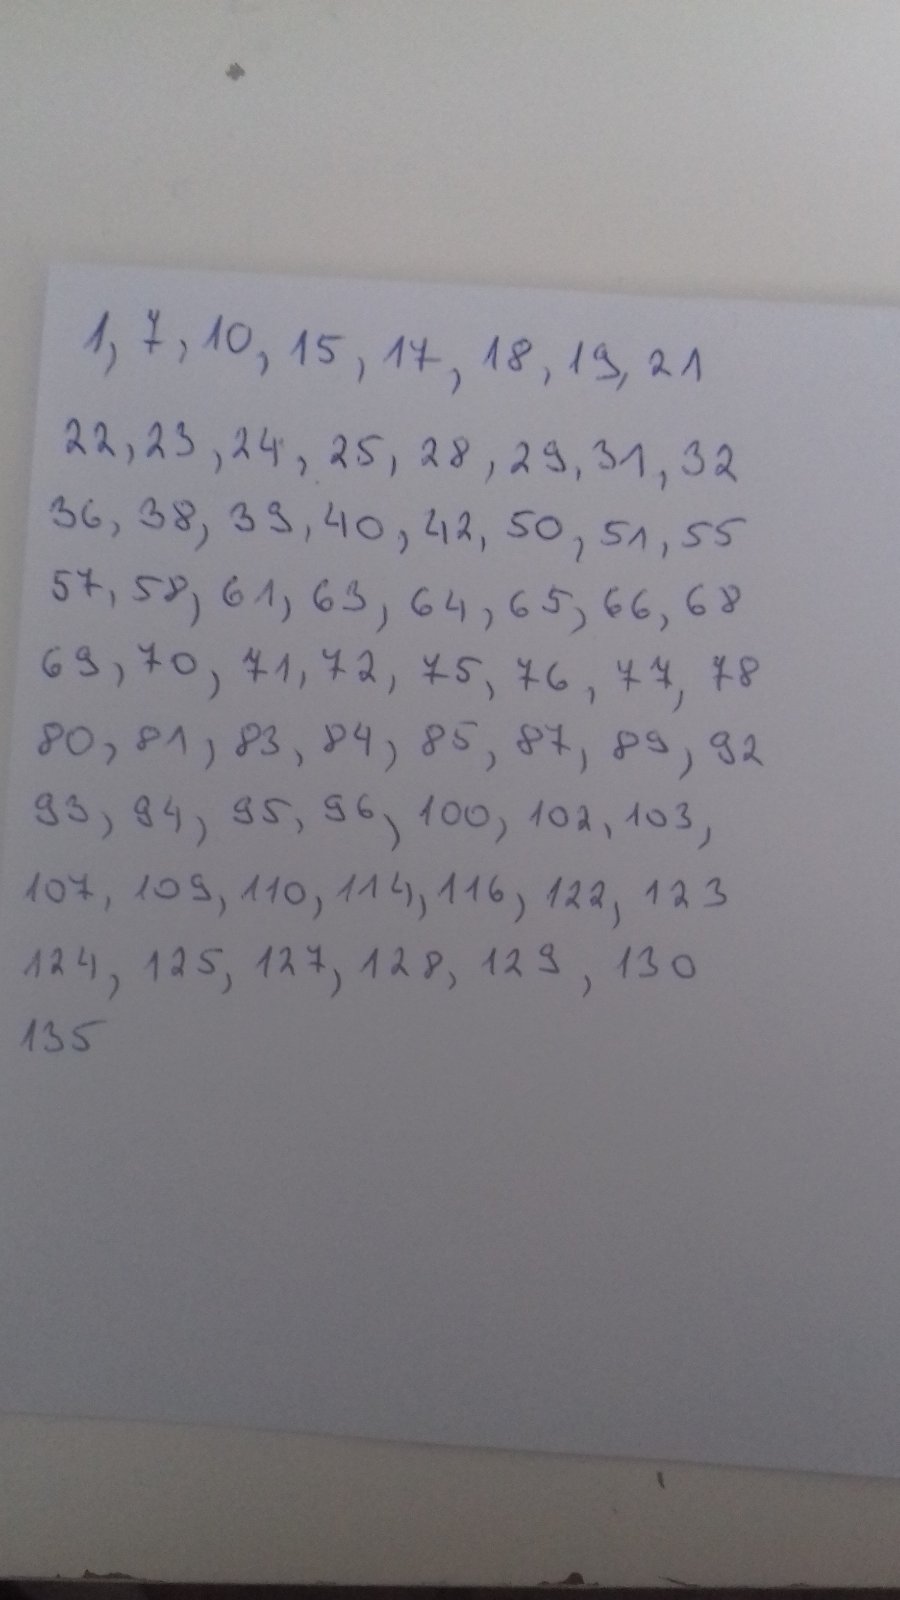 1, 7, 10, 15, 17, 18, 19, 21
22, 23, 24, 25, 28, 29, 31, 32
36, 38, 39, 40, 42, 50, 51, 55
57, 58, 61, 63, 64, 65, 66, 68
69, 70, 71, 72, 75, 76, 77, 78
80, 81, 83, 84, 85, 87, 89, 92
93, 94, 95, 96, 100, 102, 103,
107, 109, 110, 114, 116, 122, 123
124, 125, 127, 128, 129, 130
135